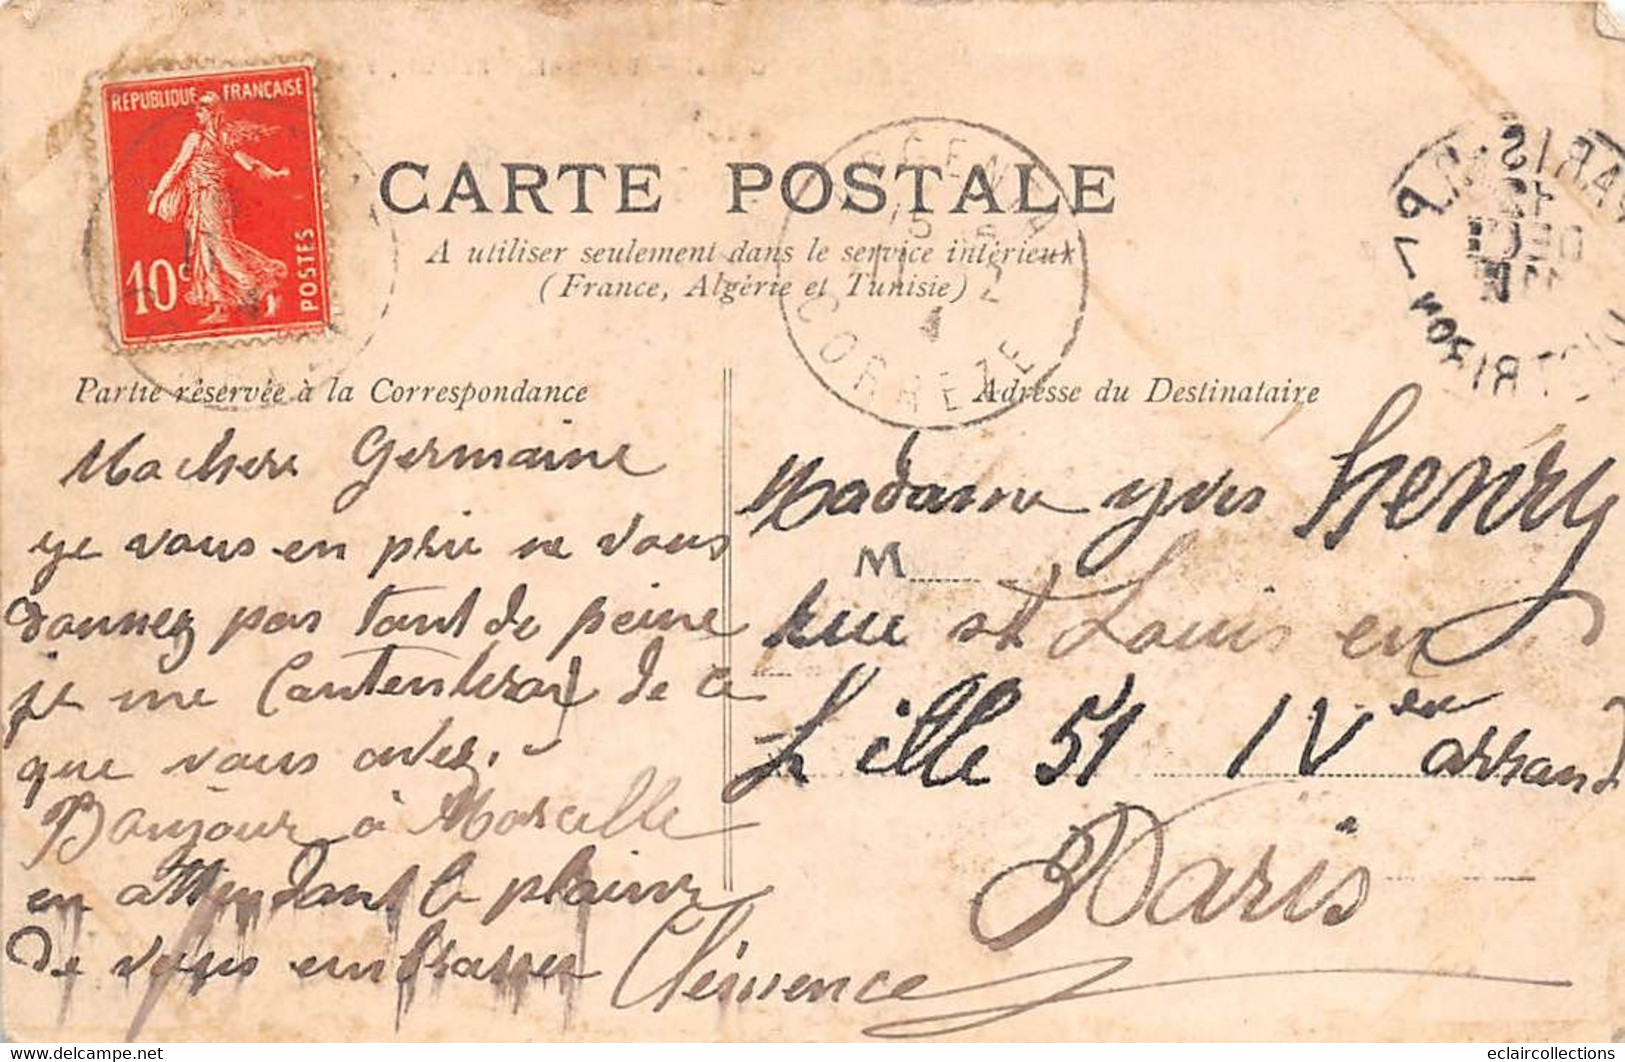 RÉPUBLIQUE FRANÇAISE
10c
POSTES
CARTE POSTALE
A utiliser seulement dans le service intérieur
(France, Algérie et Tunisie)
CORREZE
PARIS
DEC
Partie réservée à la Correspondance
Adresse du Destinataire
Ma chere Germaine
je vous en prie ne vous
donnez pas tant de peine
je me Contenterai de ce
que vous avez.
Bonjour à Marcelle
en attendant le plaisir
de vous embrasser Clémence
Madame yves henry
M
rue st Louis en
L'ille 51 IV em arrond
Paris
eclaircollections